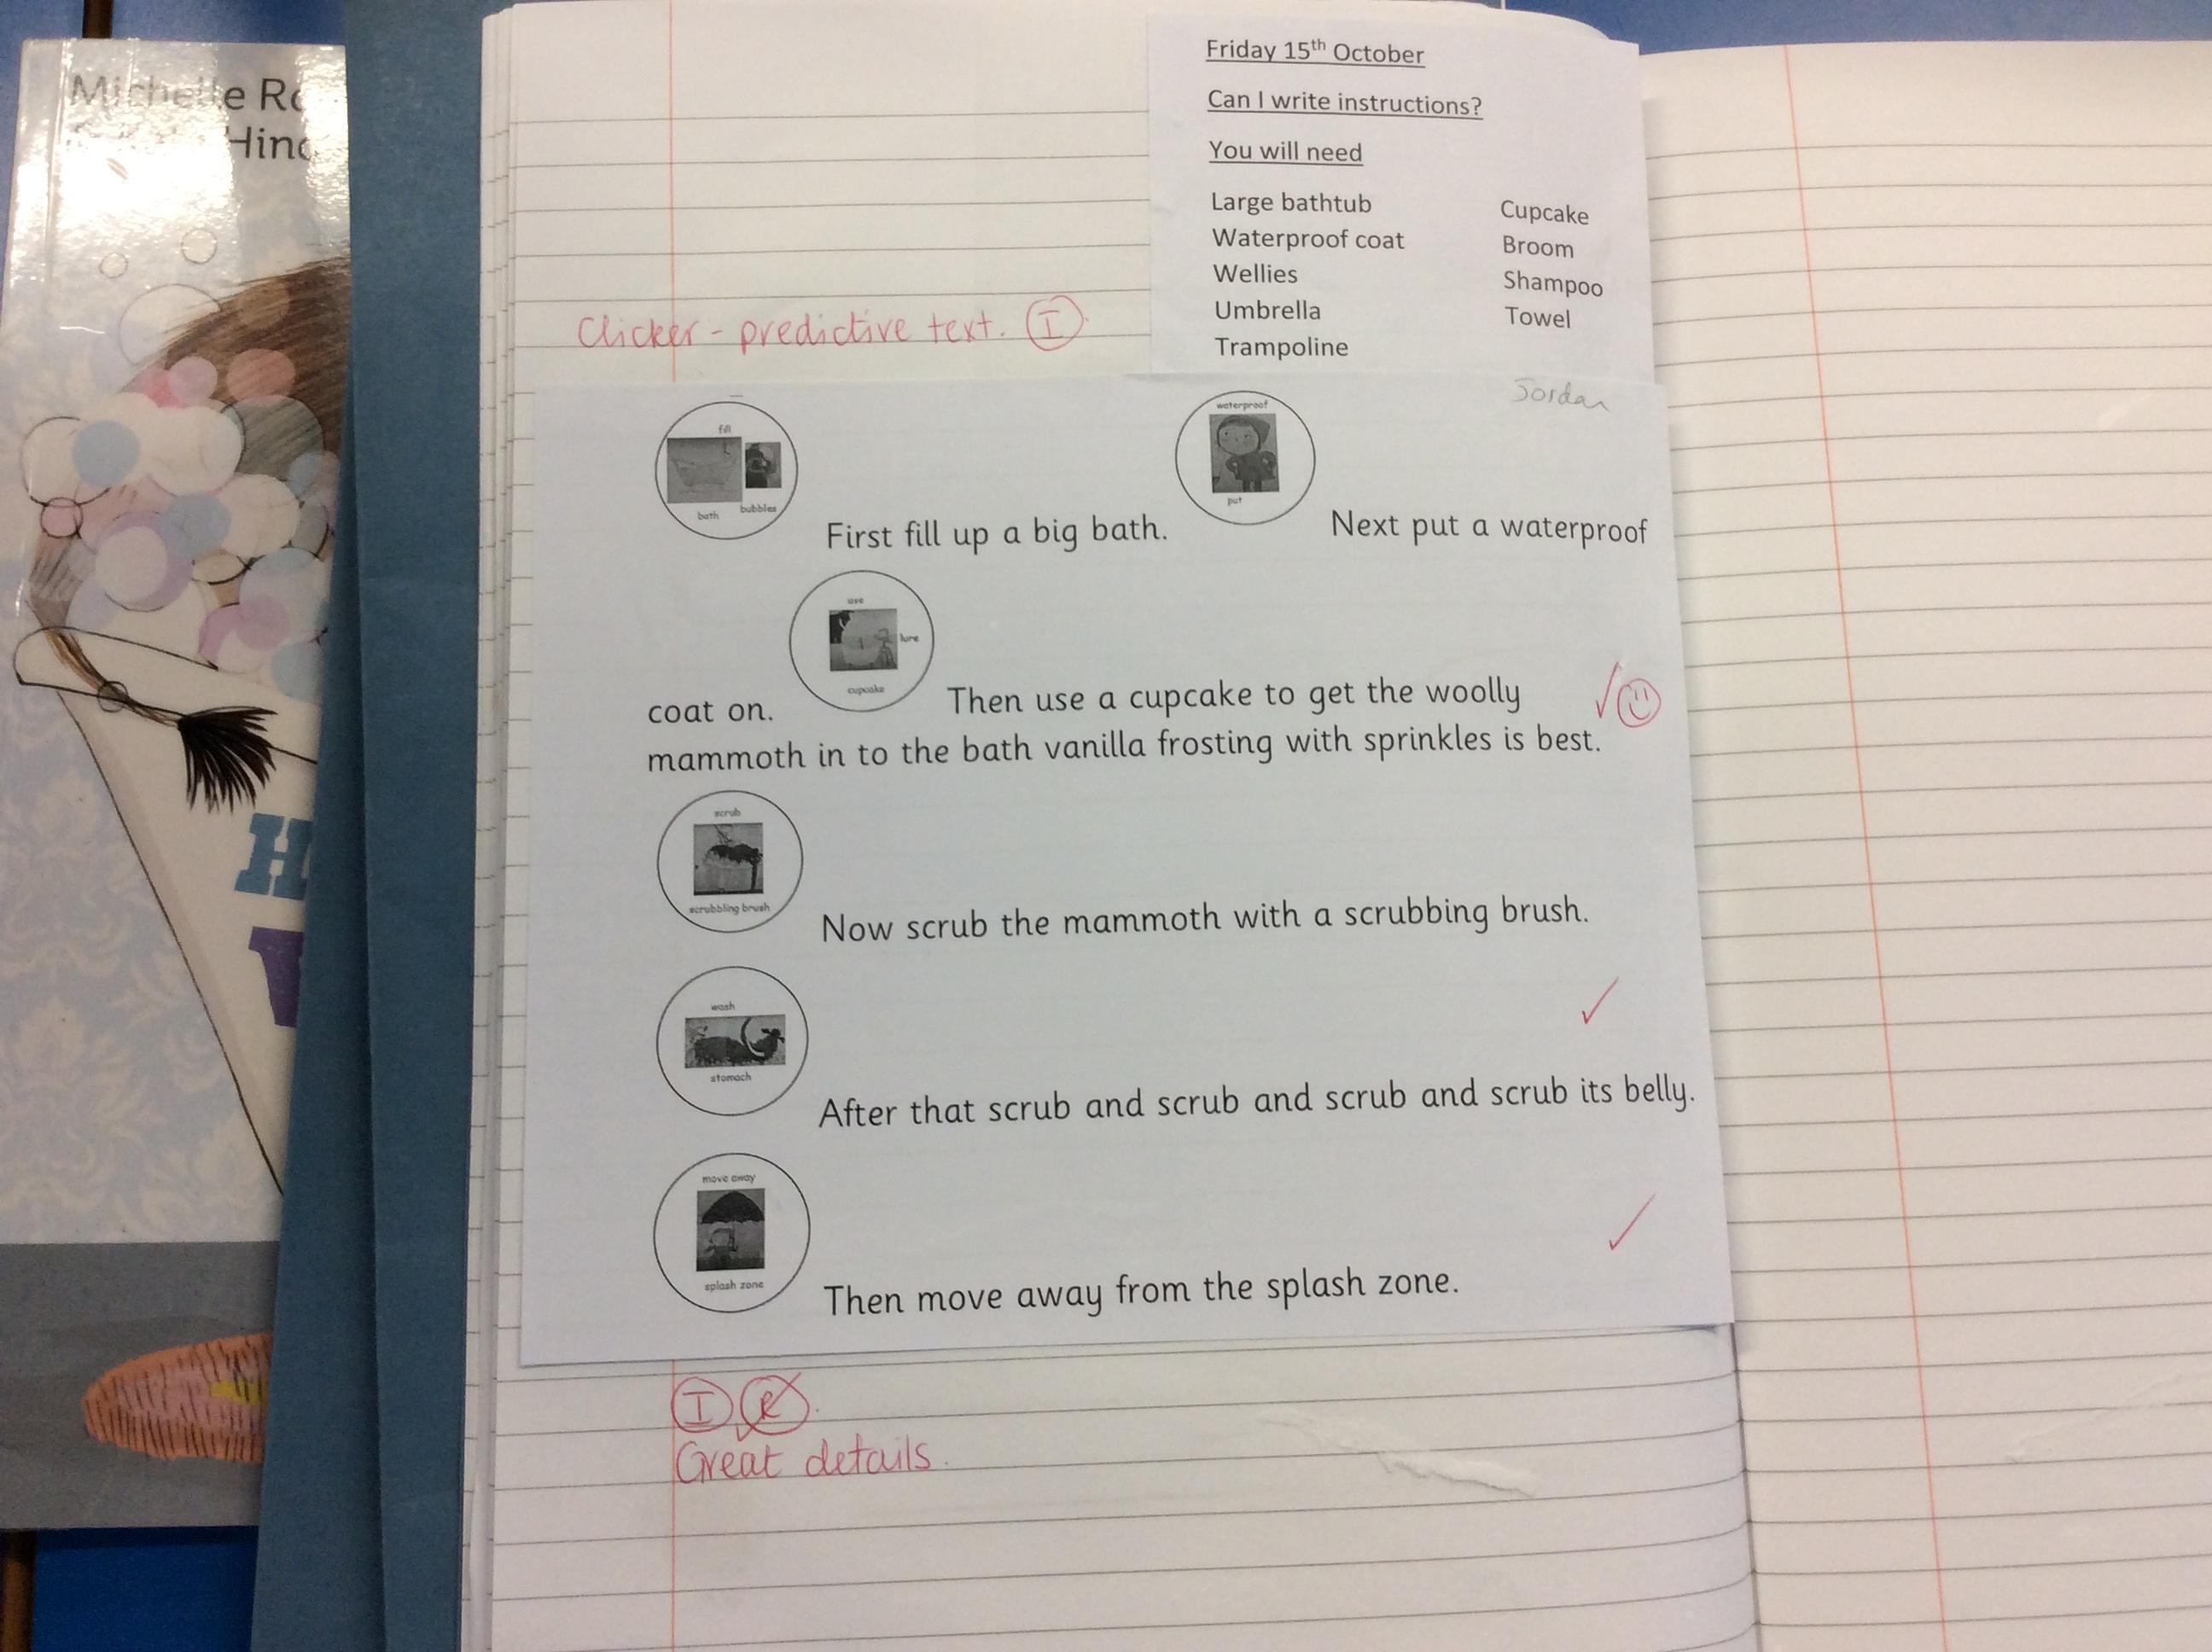 Michelle Ro
Hind
H
Friday 15th October
Can I write instructions?
You will need
Large bathtub
Waterproof coat
Wellies
Umbrella
Trampoline
Cupcake
Broom
Shampoo
Towel
Clicker - predictive text. I
Jordan
fill
bath bubbles
First fill up a big bath.
waterproof
put
Next put a waterproof
use
lure
cupcake
coat on.
Then use a cupcake to get the woolly
mammoth in to the bath vanilla frosting with sprinkles is best.
scrub
scrubbling brush
Now scrub the mammoth with a scrubbing brush.
wash
stomach
After that scrub and scrub and scrub and scrub its belly.
move away
splash zone
Then move away from the splash zone.
I
Great details.